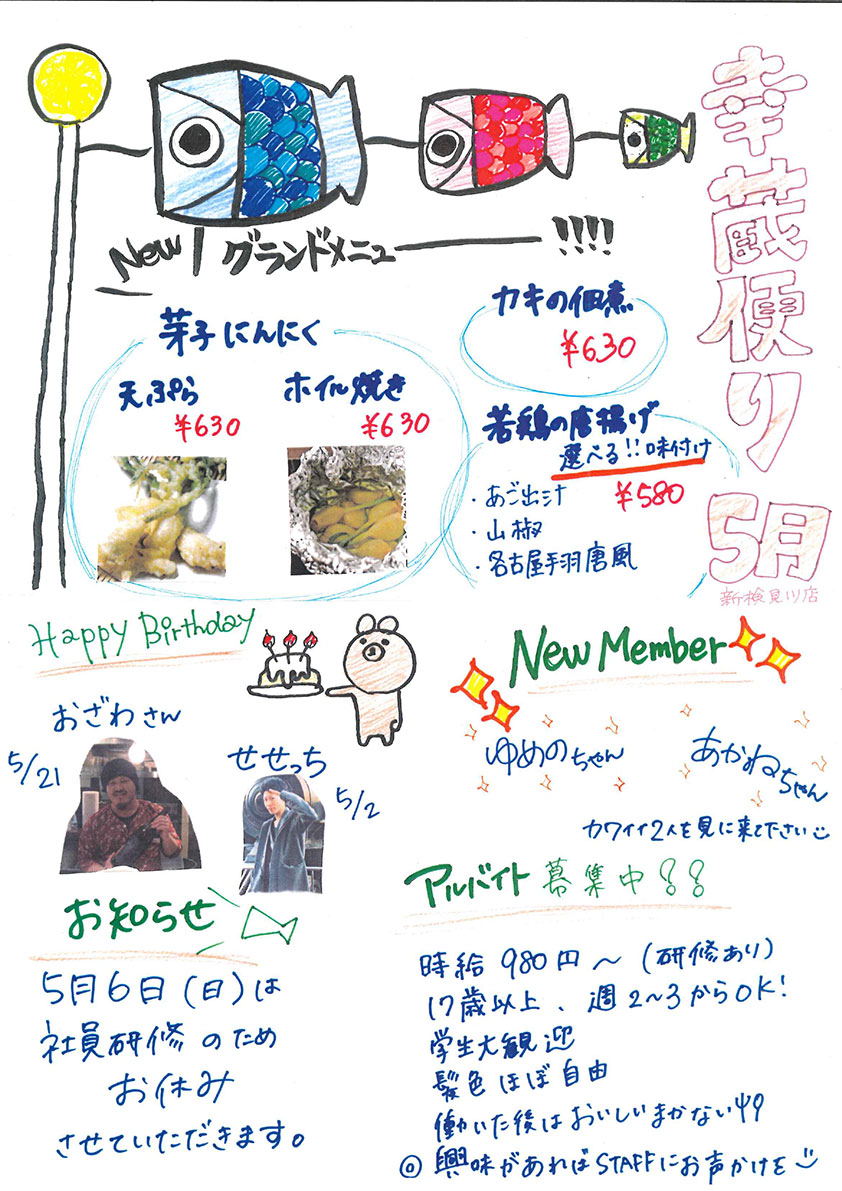 幸蔵便り 5月
新検見川店
New! グランドメニュー!!!!
芽子にんにく
天ぷら
¥630
ホイル焼き
¥630
カキの佃煮
¥630
若鶏の唐揚げ
選べる!!味付け
¥580
・あご出汁
・山椒
・名古屋手羽唐風
Happy Birthday
おざわさん
5/21
せせっち
5/2
お知らせ
5月6日(日)は
社員研修のため
お休み
させていただきます。
New Member
ゆめのちゃん
あかねちゃん
カワイイ2人を見に来て下さい
アルバイト募集中!!
時給980円〜(研修あり)
17歳以上、週2〜3からOK!
学生大観迎
髪色ほぼ自由
働いた後はおいしいまかない
◎興味があればSTAFFにお声かけを